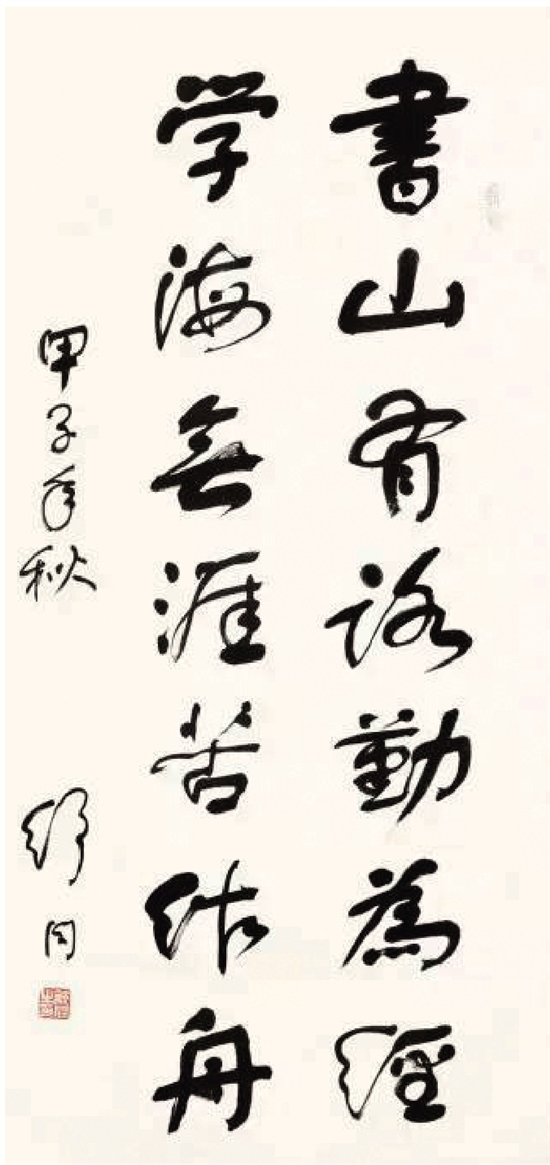 書山有路勤為徑
学海無涯苦作舟
甲子年秋
舒同